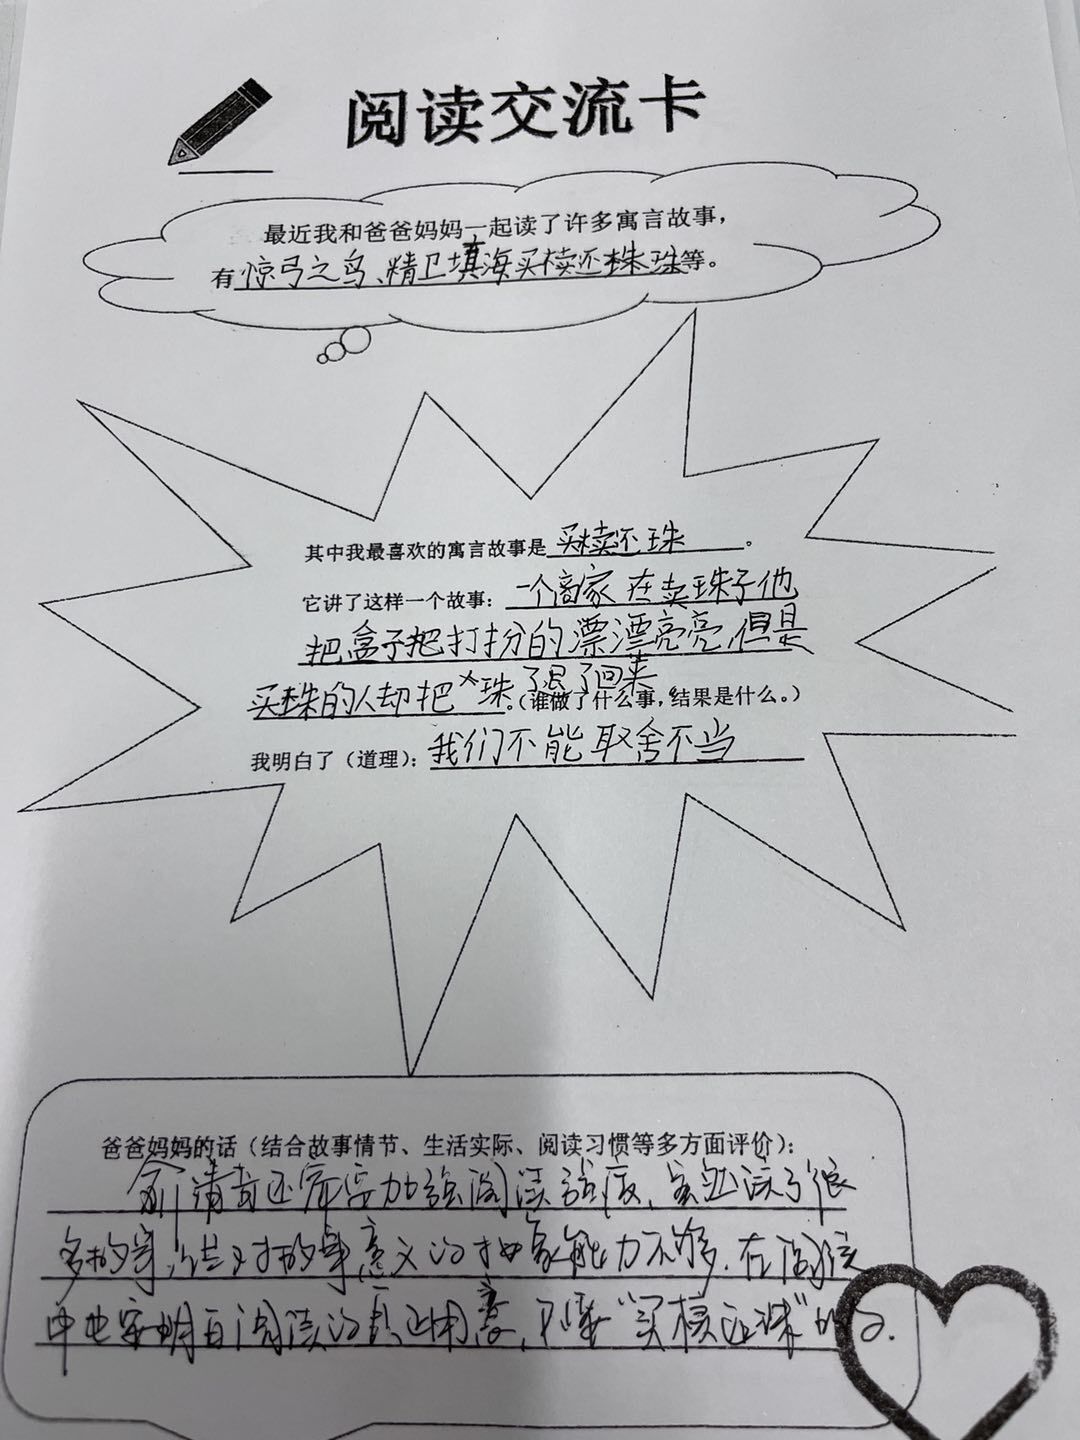 阅读交流卡
最近我和爸爸妈妈一起读了许多寓言故事，
有惊弓之鸟、精卫填海买椟还珠等。
其中我最喜欢的寓言故事是买椟还珠。
它讲了这样一个故事：一个商家在卖珠子他
把盒子把打扮的漂漂亮亮，但是
了退了回来
买珠的人却把珠。（谁做了什么事，结果是什么。）
我明白了（道理）：我们不能取舍不当
爸爸妈妈的话（结合故事情节、生活实际、阅读习惯等多方面评价）：
还需要加强阅读强度，虽然读了很
多故事，但对故事意义的抽象能力不够。在阅读
中也要明白阅读的真正用意，不要“买椟还珠”